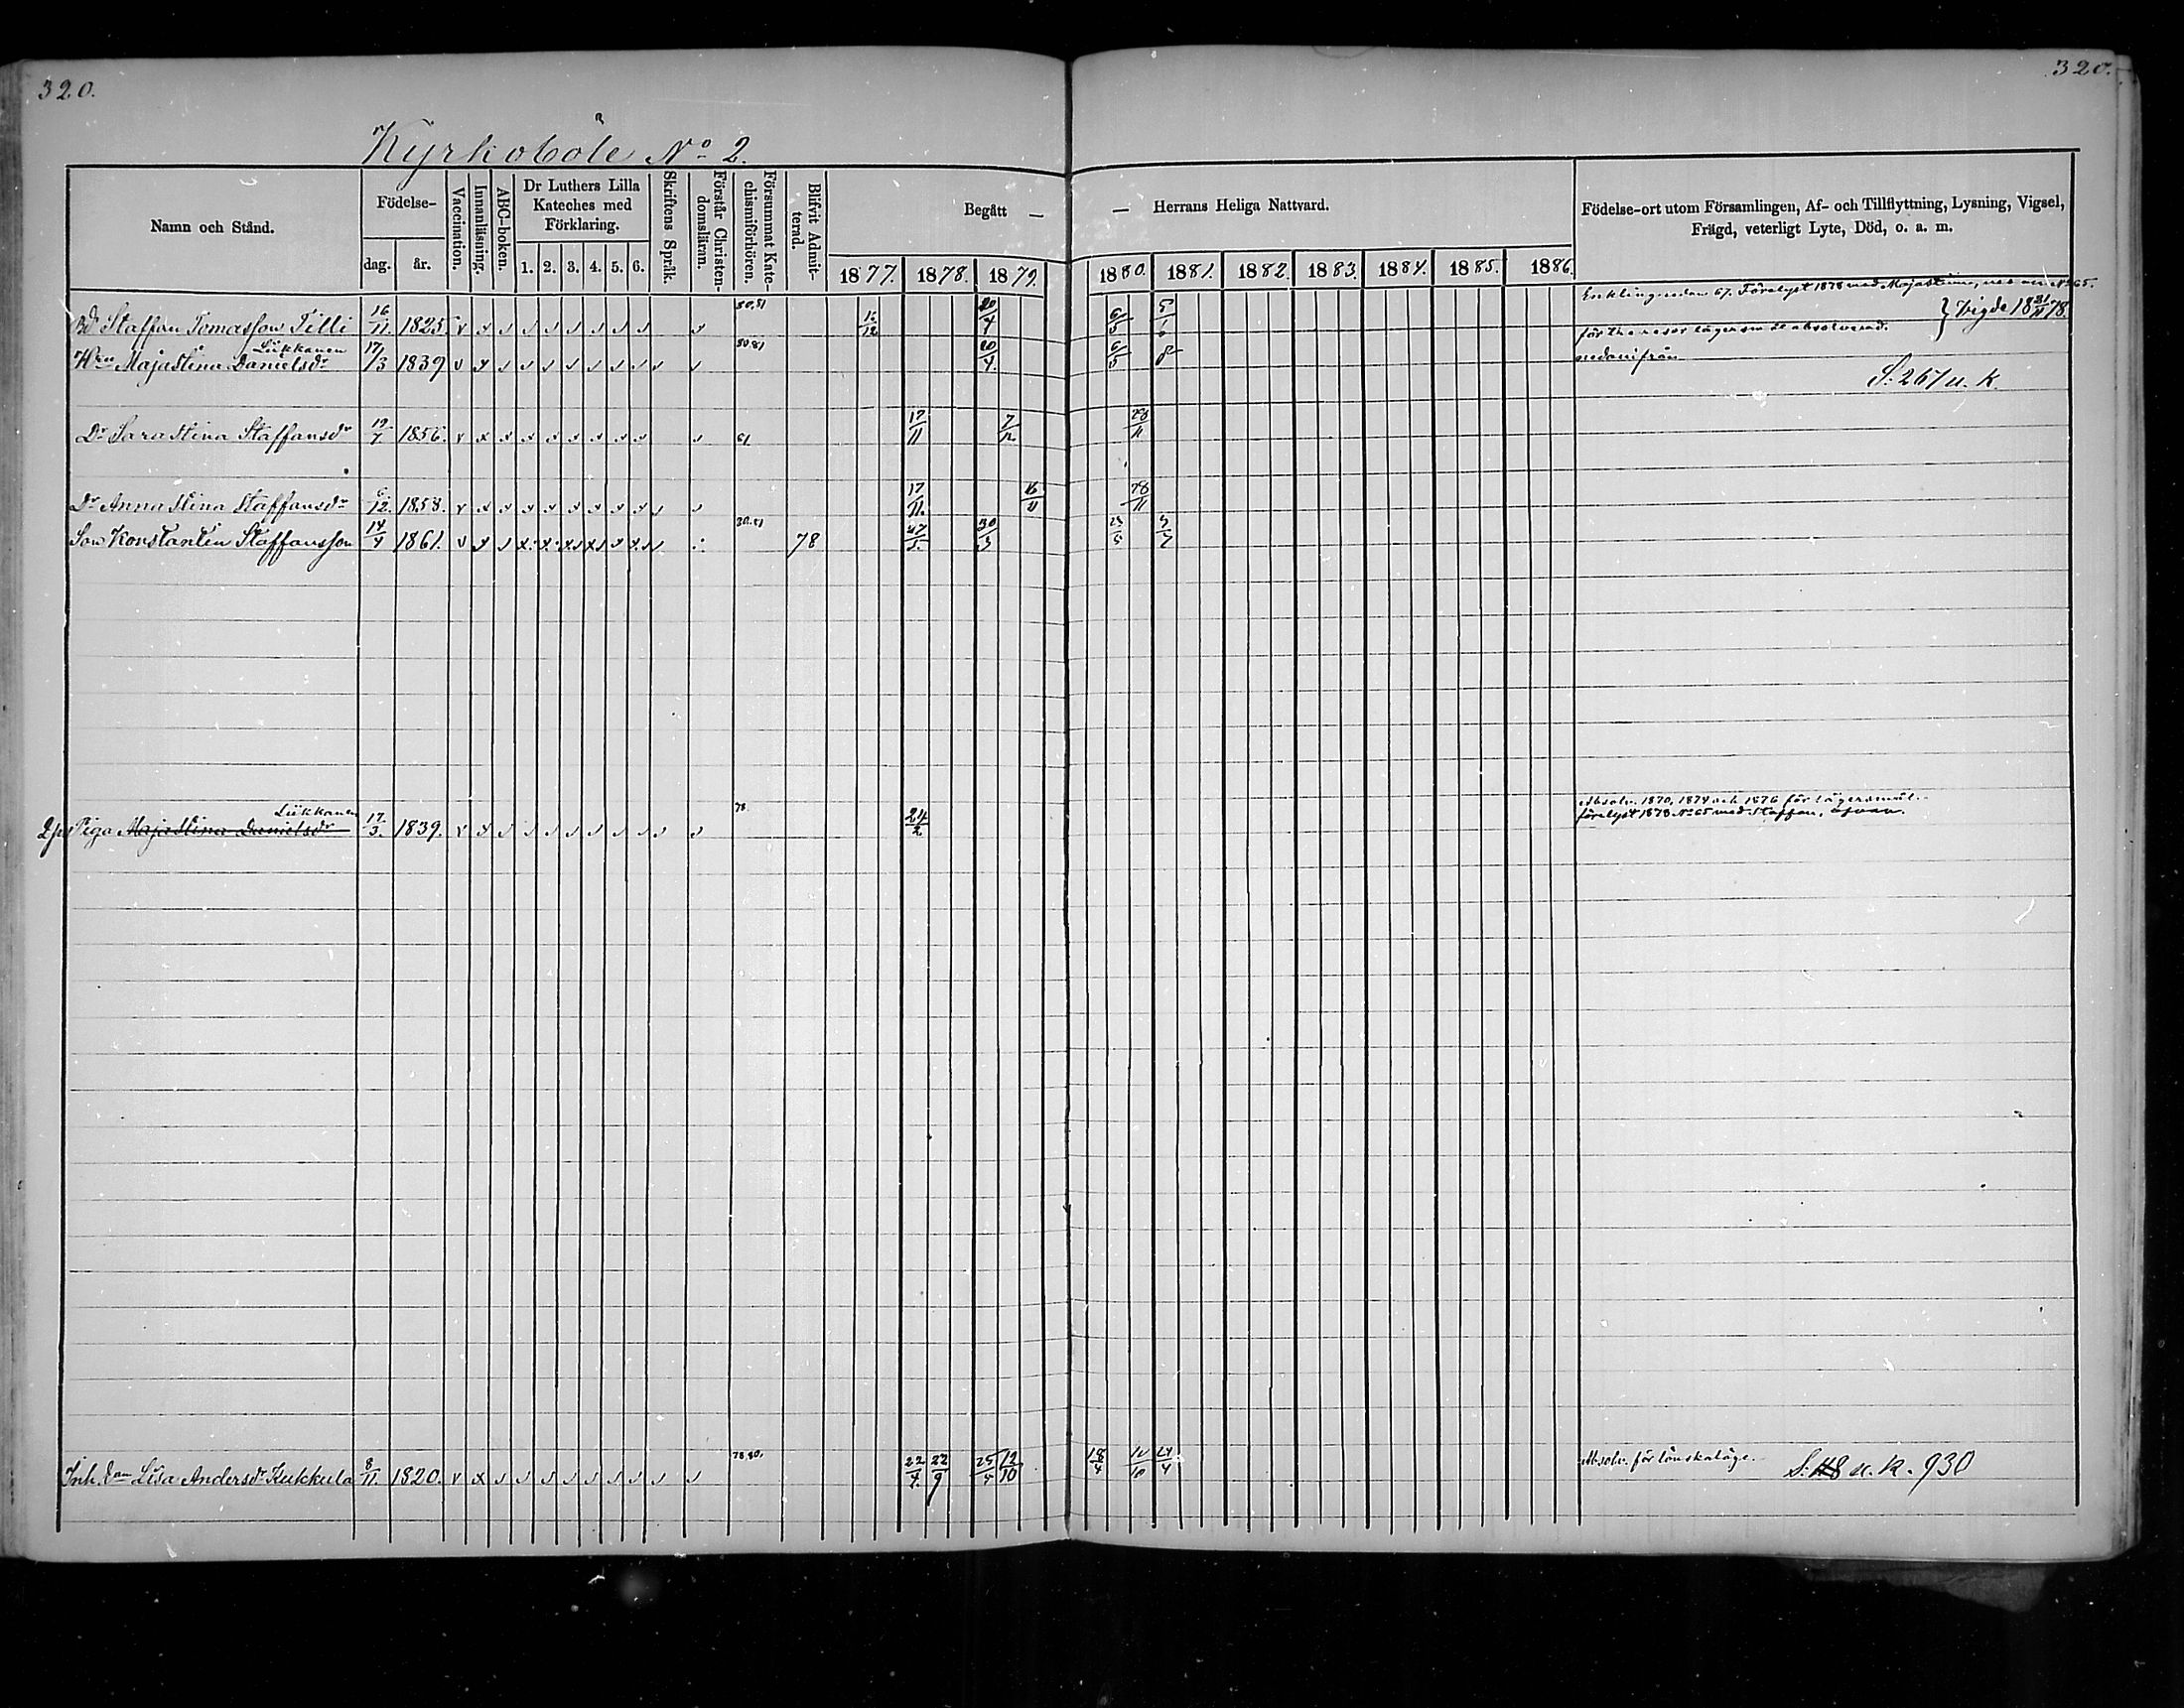 320.
320.
Kyrkoböle No 2.
Namn och Stånd.
Födelse-
dag.
år.
Vaccination.
Innanläsning.
ABC-boken.
Dr Luthers Lilla Kateches med Förklaring.
1. 2. 3. 4. 5. 6.
Skriftens Språk.
Förstår Christen-domsläran.
Försummat Kate-chismiförhören.
Blifvit Admit-terad.
Begått —
— Herrans Heliga Nattvard.
1877. 1878. 1879. 1880. 1881. 1882. 1883. 1884. 1885. 1886.
Födelse-ort utom Församlingen, Af- och Tillflyttning, Lysning, Vigsel,
Frägd, veterligt Lyte, Död, o. a. m.
Bd Staffan Tomasson Tilli 16/11. 1825. 80.81 16/12 20/4 6/5 Enkling sedan 67. Förelyst 1878 med Majastina, No 65.
Vigde 18 31/11 78.
för lägersm. absolverad.
Lükkanen
Hnu Majastina Danielsdr 17/3 1839 80 81 20/4. 6/5 nedanifrån
S: 267 u. k.
Dr Sarastina Staffansdr 19/7 1856. 61 17/11 7/12 28/11
Dr Annastina Staffansdr 6/12. 1858. 17/11. 16/11 28/11
Son Konstantin Staffansson 14/4 1861. 80.81 78 30/3
Lükkanen
Piga Majastina Danielsdr 17/3. 1839. 78 24/2
Absolv. 1870, 1874 och 1876 för lägersmål.
förelyst 1878 No 65 med Staffan, ofvan.
Inh. Lisa Andersdr Kukkula 8/11. 1820. 78.80. 22/4. 22/9 25/5 12/10 18/4 10/10 24/4 Absolv. för lönskaläge. S: 118 u. k. 930